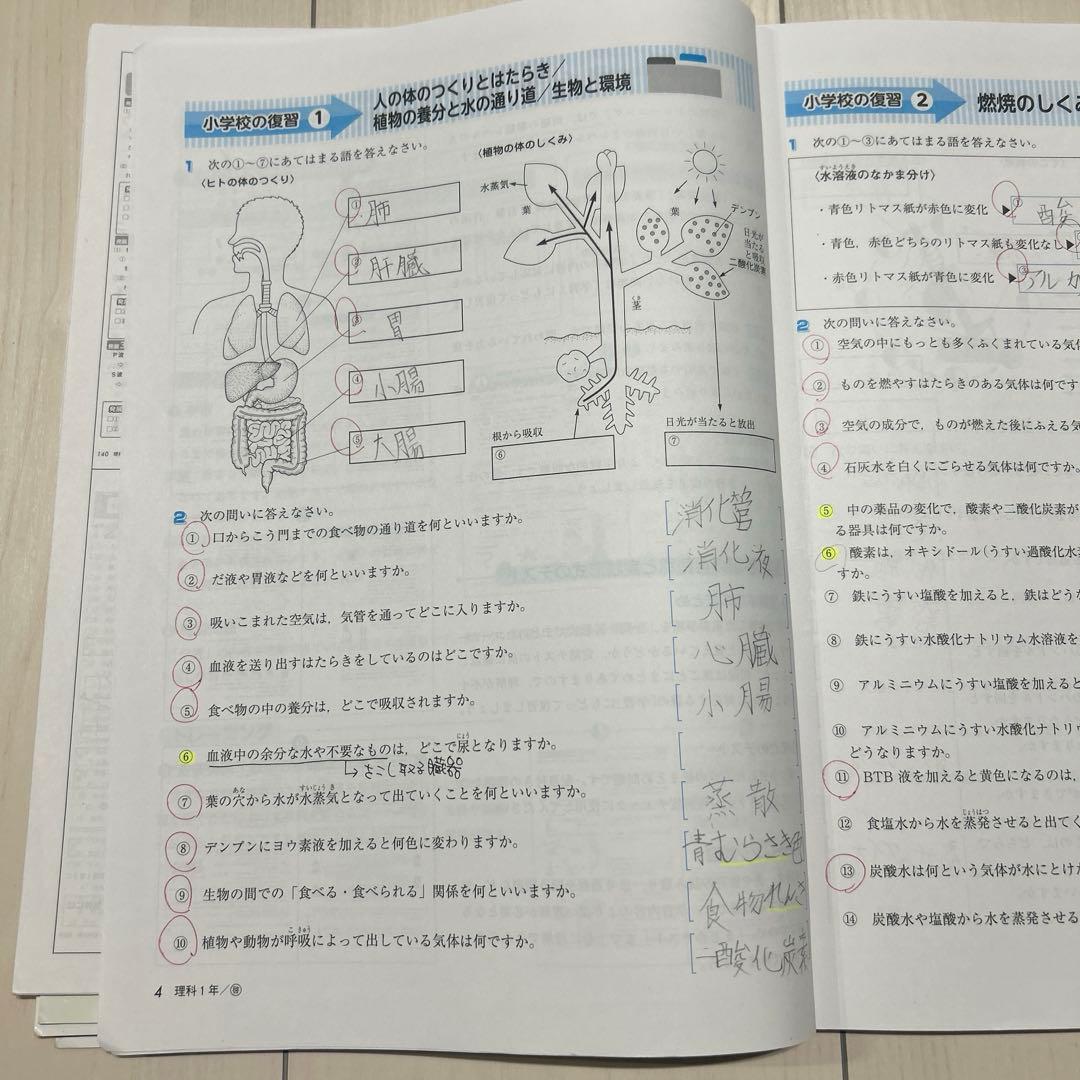 小学校の復習 1
人の体のつくりとはたらき／
植物の養分と水の通り道／生物と環境
1 次の①～⑦にあてはまる語を答えなさい。
〈ヒトの体のつくり〉
① 肺
② 肝臓
③ 胃
④ 小腸
⑤ 大腸
〈植物の体のしくみ〉
水蒸気
葉
葉
デンプン
日光が
当たると
吸収
二酸化炭素
くき
茎
根から吸収
⑥
日光が当たると放出
⑦
2 次の問いに答えなさい。
① 口からこう門までの食べ物の通り道を何といいますか。 [消化管]
② だ液や胃液などを何といいますか。 [消化液]
③ 吸いこまれた空気は，気管を通ってどこに入りますか。 [肺]
④ 血液を送り出すはたらきをしているのはどこですか。 [心臓]
⑤ 食べ物の中の養分は，どこで吸収されますか。 [小腸]
にょう
⑥ 血液中の余分な水や不要なものは，どこで尿となりますか。 [
↳をこし取る臓器
あな すいじょうき
⑦ 葉の穴から水が水蒸気となって出ていくことを何といいますか。 [蒸散
⑧ デンプンにヨウ素液を加えると何色に変わりますか。 [青むらさき色
⑨ 生物の間での「食べる・食べられる」関係を何といいますか。 [食物れんさ
こきゅう
⑩ 植物や動物が呼吸によって出している気体は何ですか。 [二酸化炭素
4 理科1年／
小学校の復習 2
燃焼のしくみ
1 次の①～③にあてはまる語を答えなさい。
すいようえき
〈水溶液のなかま分け〉
・青色リトマス紙が赤色に変化 ▶ ① 酸
・青色，赤色どちらのリトマス紙も変化なし ▶
・赤色リトマス紙が青色に変化 ▶ ③ アルカ
2 次の問いに答えなさい。
① 空気の中にもっとも多くふくまれている気体
② ものを燃やすはたらきのある気体は何です
③ 空気の成分で，ものが燃えた後にふえる気
④ 石灰水を白くにごらせる気体は何ですか。
⑤ 中の薬品の変化で，酸素や二酸化炭素が
る器具は何ですか。
⑥ 酸素は，オキシドール（うすい過酸化水
すか。
⑦ 鉄にうすい塩酸を加えると，鉄はどうな
⑧ 鉄にうすい水酸化ナトリウム水溶液を
⑨ アルミニウムにうすい塩酸を加えると
⑩ アルミニウムにうすい水酸化ナトリウ
どうなりますか。
⑪ BTB 液を加えると黄色になるのは，
じょうはつ
⑫ 食塩水から水を蒸発させると出てく
⑬ 炭酸水は何という気体が水にとけ
⑭ 炭酸水や塩酸から水を蒸発させる
P波
S波
140 理科